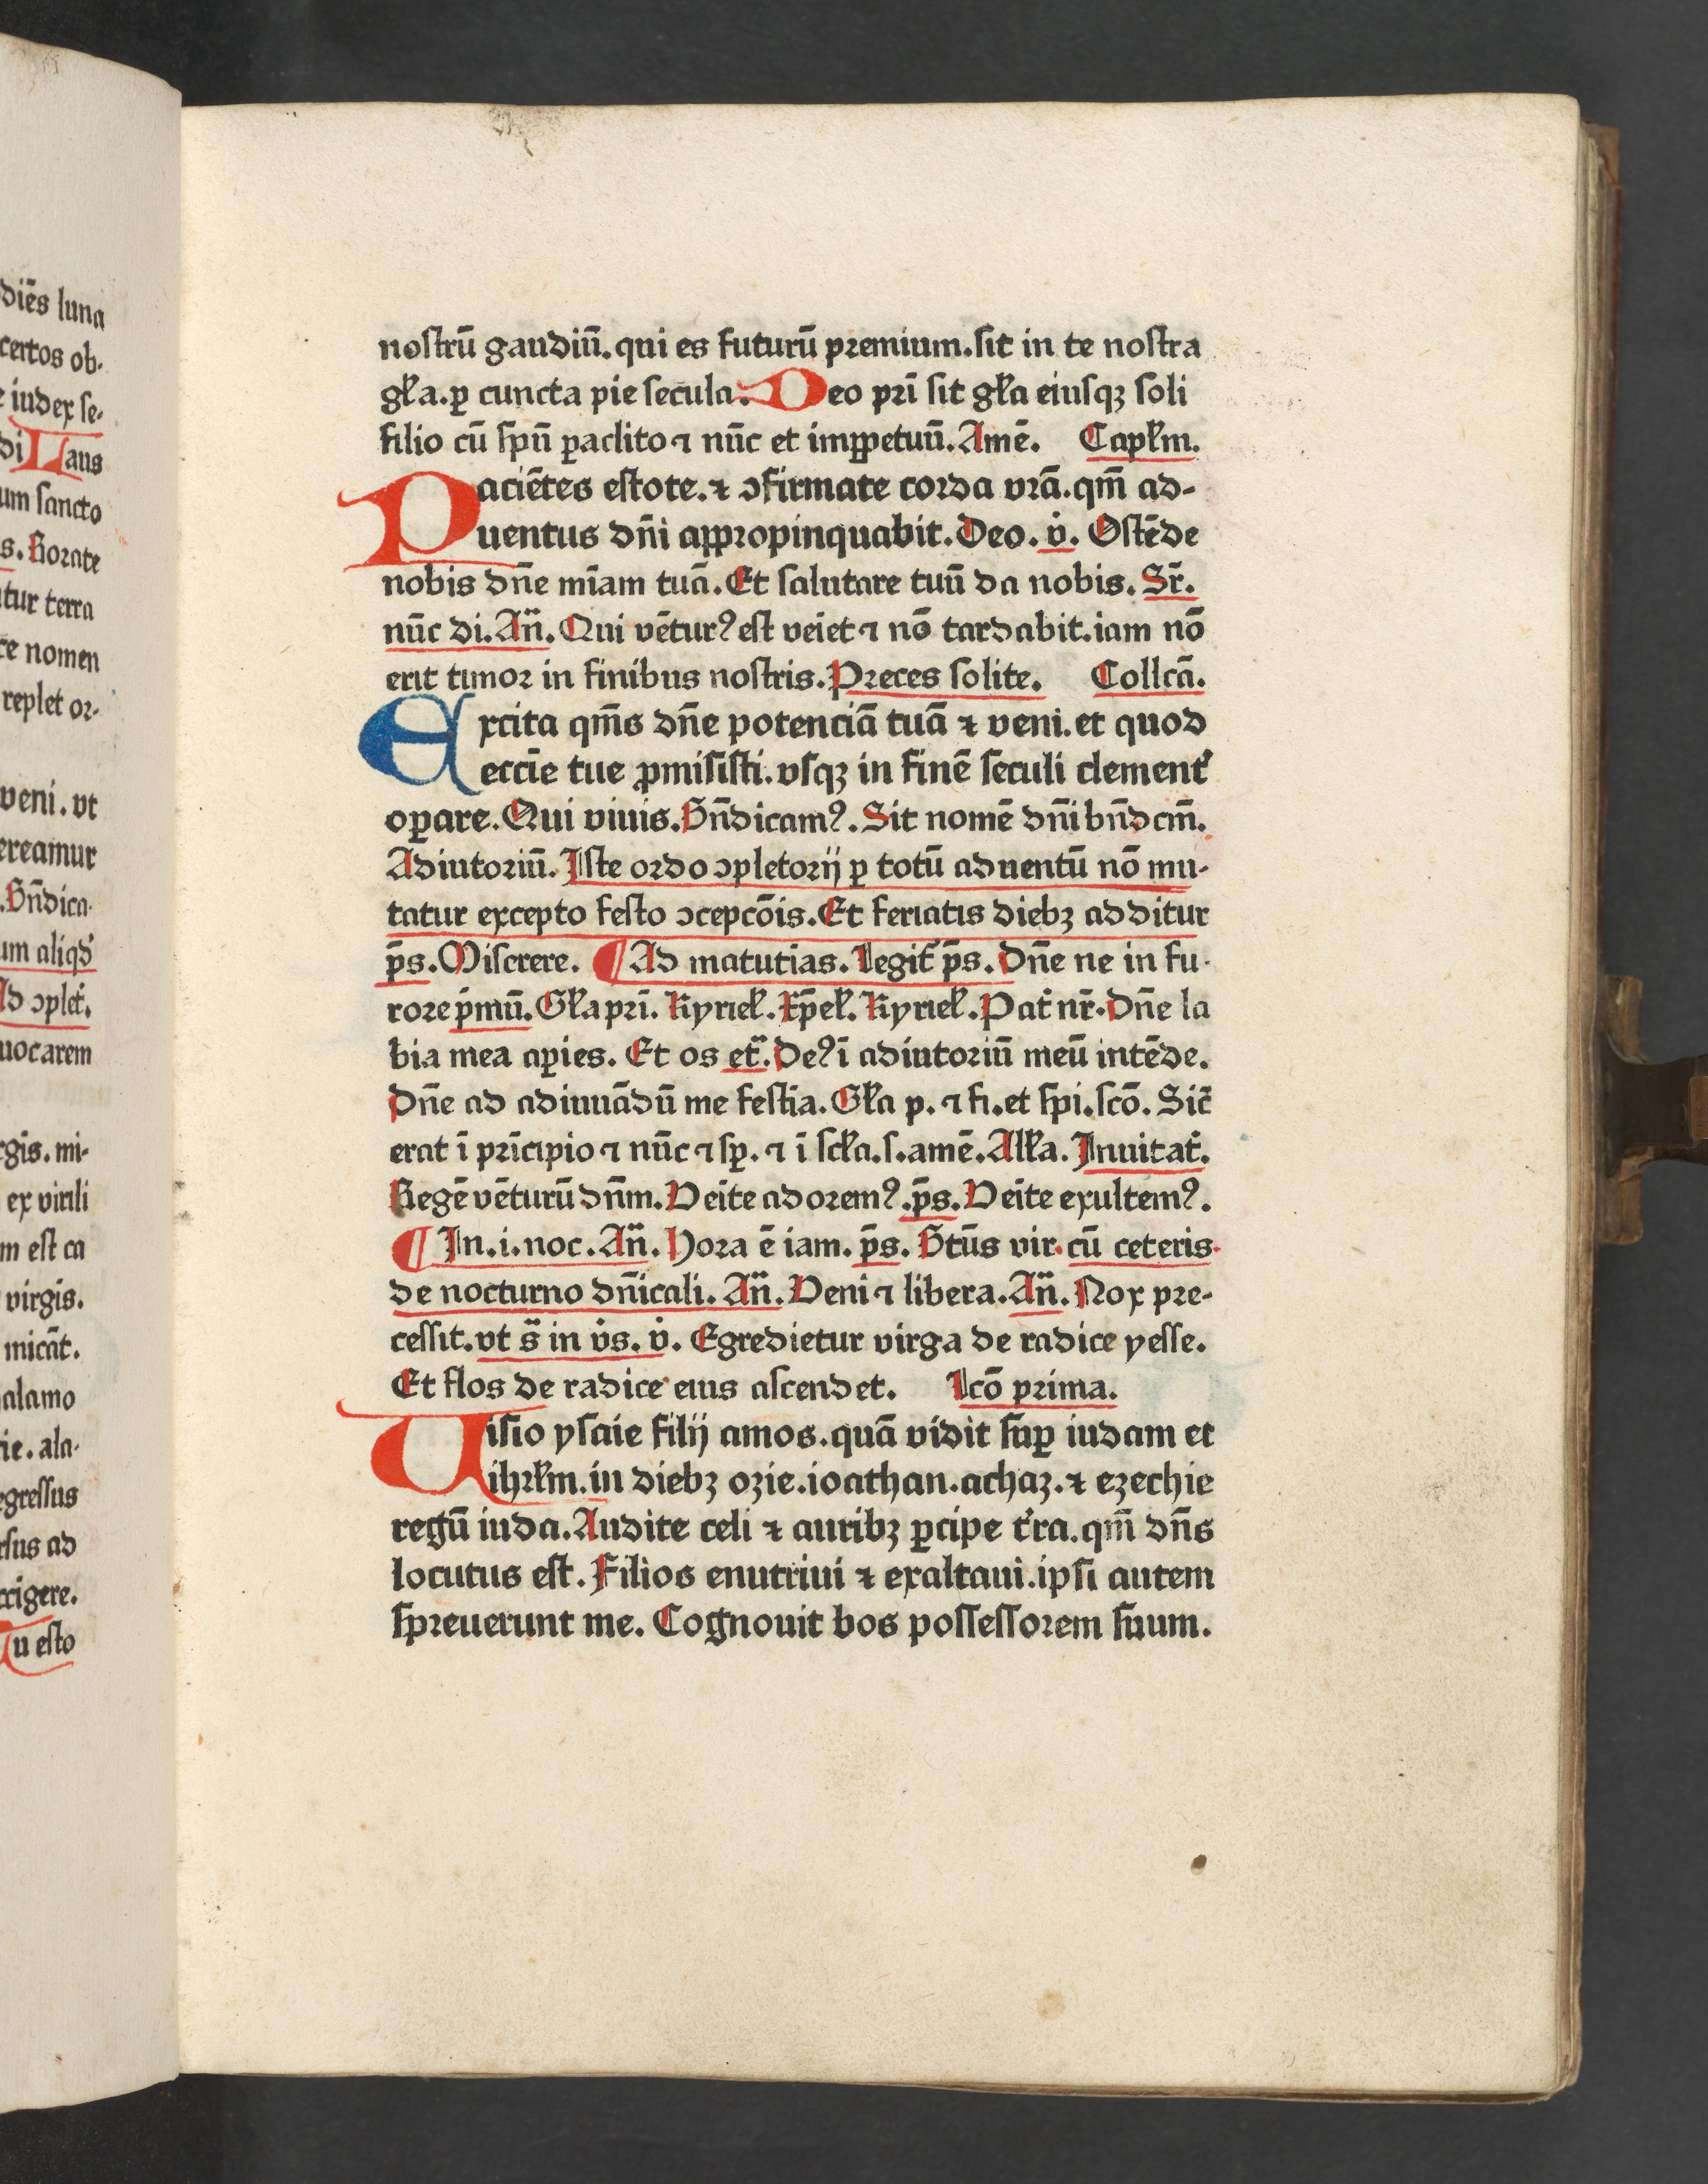 diēs luna
certos ob-
e iudex se-
di Laus
um sancto
s. Rorate
tur terra
ce nomen
replet or-
veni. vt
ereamur
. Bn̄dica-
um aliqd'
Ad ꝯplet̉.
uocarem
rgis. mi-
ex virili
m est ca
virgis.
micāt.
alamo
rie. ala-
egressus
rsus ad
rrigere.
Tu esto
nostrū gaudiū. qui es futurū premium. sit in te nostra
gl̄a. ꝑ cuncta pie secula. Deo pr̄i sit gl̄a eiusqꝫ soli
filio cū sp̄ū ꝑaclito ⁊ nūc et imꝑpetuū. Amē. Capl̄m.
Paciētes estote. ⁊ ꝯfirmate corda vr̄a. qm̄ ad-
uentus dn̄i appropinquabit. Deo. v̇. Ostēde
nobis dn̄e mīam tuā. Et salutare tuū da nobis. Sr̄.
nūc di. An̄. Qui vēturꝰ est veīet ⁊ nō tardabit. iam nō
erit timor in finibus nostris. Preces solite. Collcā.
Excita qm̄s dn̄e potenciā tuā ⁊ veni. et quod
eccīe tue ꝓmisisti. vsqꝫ in finē seculi clement̉
oꝑare. Qui viuis. Bn̄dicamꝰ. Sit nomē dn̄i bn̄dcm̄.
Adiutoriū. Iste ordo ꝯpletorij ꝑ totū aduentū nō mu-
tatur excepto festo ꝯcepcōis. Et feriatis diebꝫ additur
p̄s. Miserere. ¶ Ad matutīas. Legit̉ p̄s. Dn̄e ne in fu-
rore p̄mū. Gl̄a pr̄i. Kyriel̄. Xp̄el̄. Kyriel̄. Pat̉ nr̄. Dn̄e la
bia mea aꝑies. Et os et̄. Deꝰ ī adiutoriū meū intēde.
Dn̄e ad adiuuādū me festīa. Gl̄a p. ⁊ fi. et spi. scō. Sic̄
erat ī prīcipio ⁊ nūc ⁊ sꝑ. ⁊ ī scl̄a. s. amē. All̄a. Inuitat̉.
Regē vēturū dn̄m. Veīte adoremꝰ. p̄s. Veīte exultemꝰ.
¶ In. i. noc. An̄. Hora ē iam. p̄s. Btūs vir. cū ceteris.
de nocturno dn̄icali. An̄. Veni ⁊ libera. An̄. Nox pre-
cessit. vt s̄ in v̇s. v̇. Egredietur virga de radice yesse.
Et flos de radice eius ascendet. Lcō prima.
Uisio ysaie filij amos. quā vidit suꝑ iudam et
ihrl̄m. in diebꝫ ozie. ioathan. achaz. ⁊ ezechie
regū iuda. Audite celi ⁊ auribꝫ ꝑcipe t̉ra. qm̄ dn̄s
locutus est. Filios enutriui ⁊ exaltaui. ipsi autem
spreuerunt me. Cognouit bos possessorem suum.